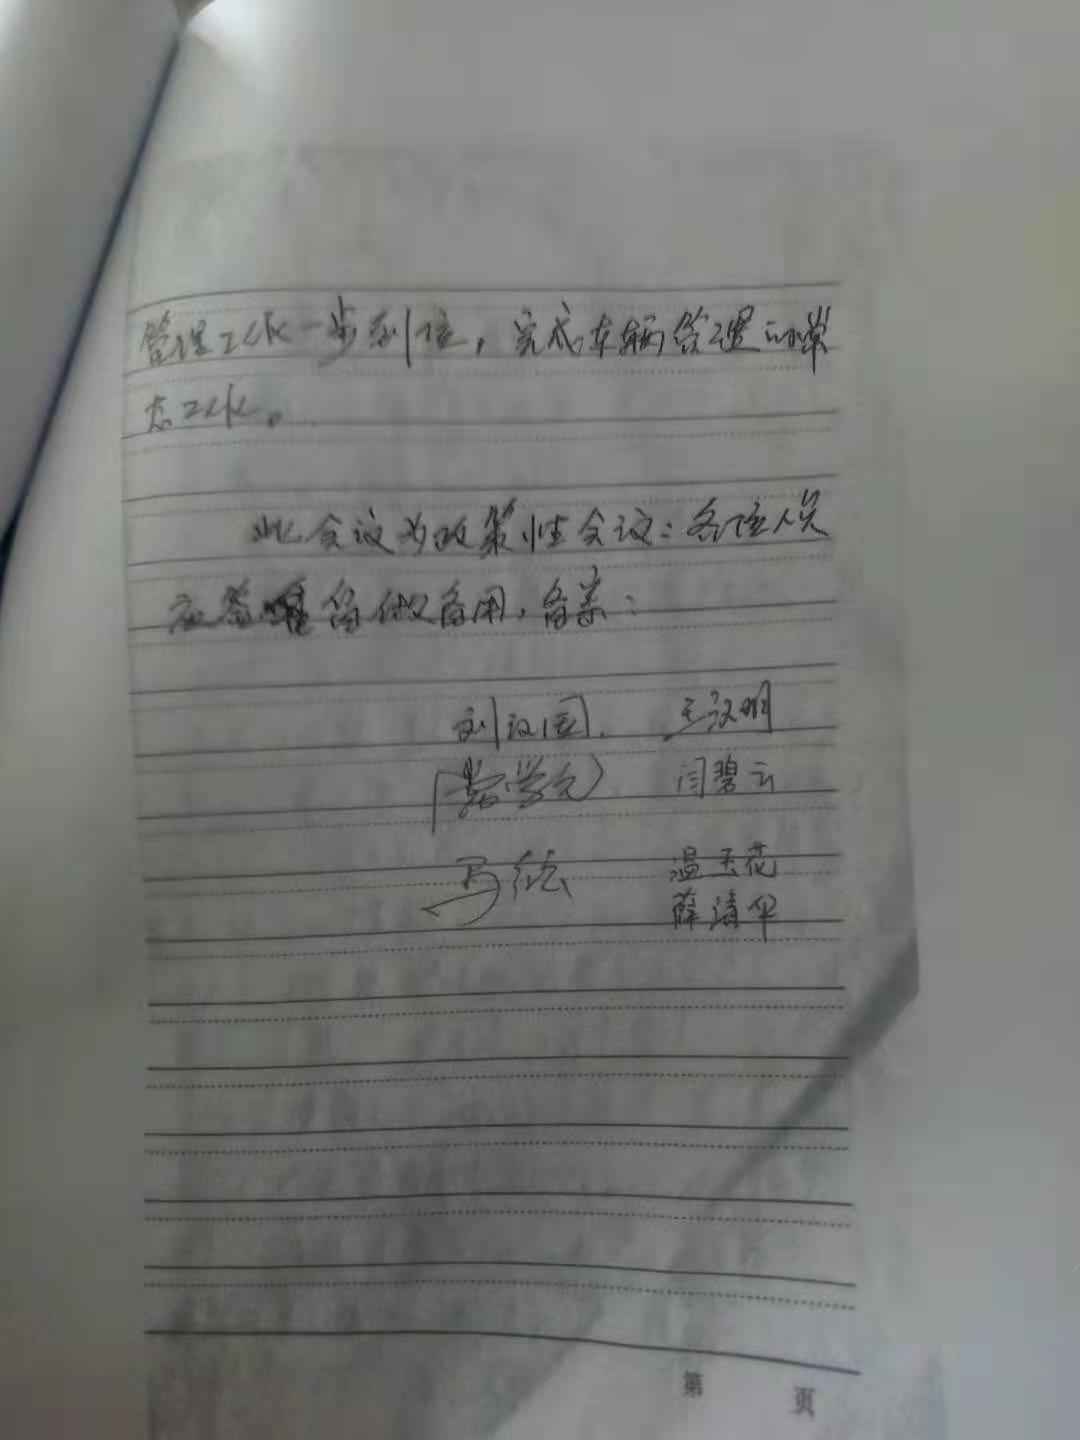 管理工作一步到位，完成车辆管理的常
态工作。
此会议为政策性会议：各位人员
应签 留做备用，备案：
刘汉国. 王汉明
学 闫碧云
马 温玉花
薛清华
第 页